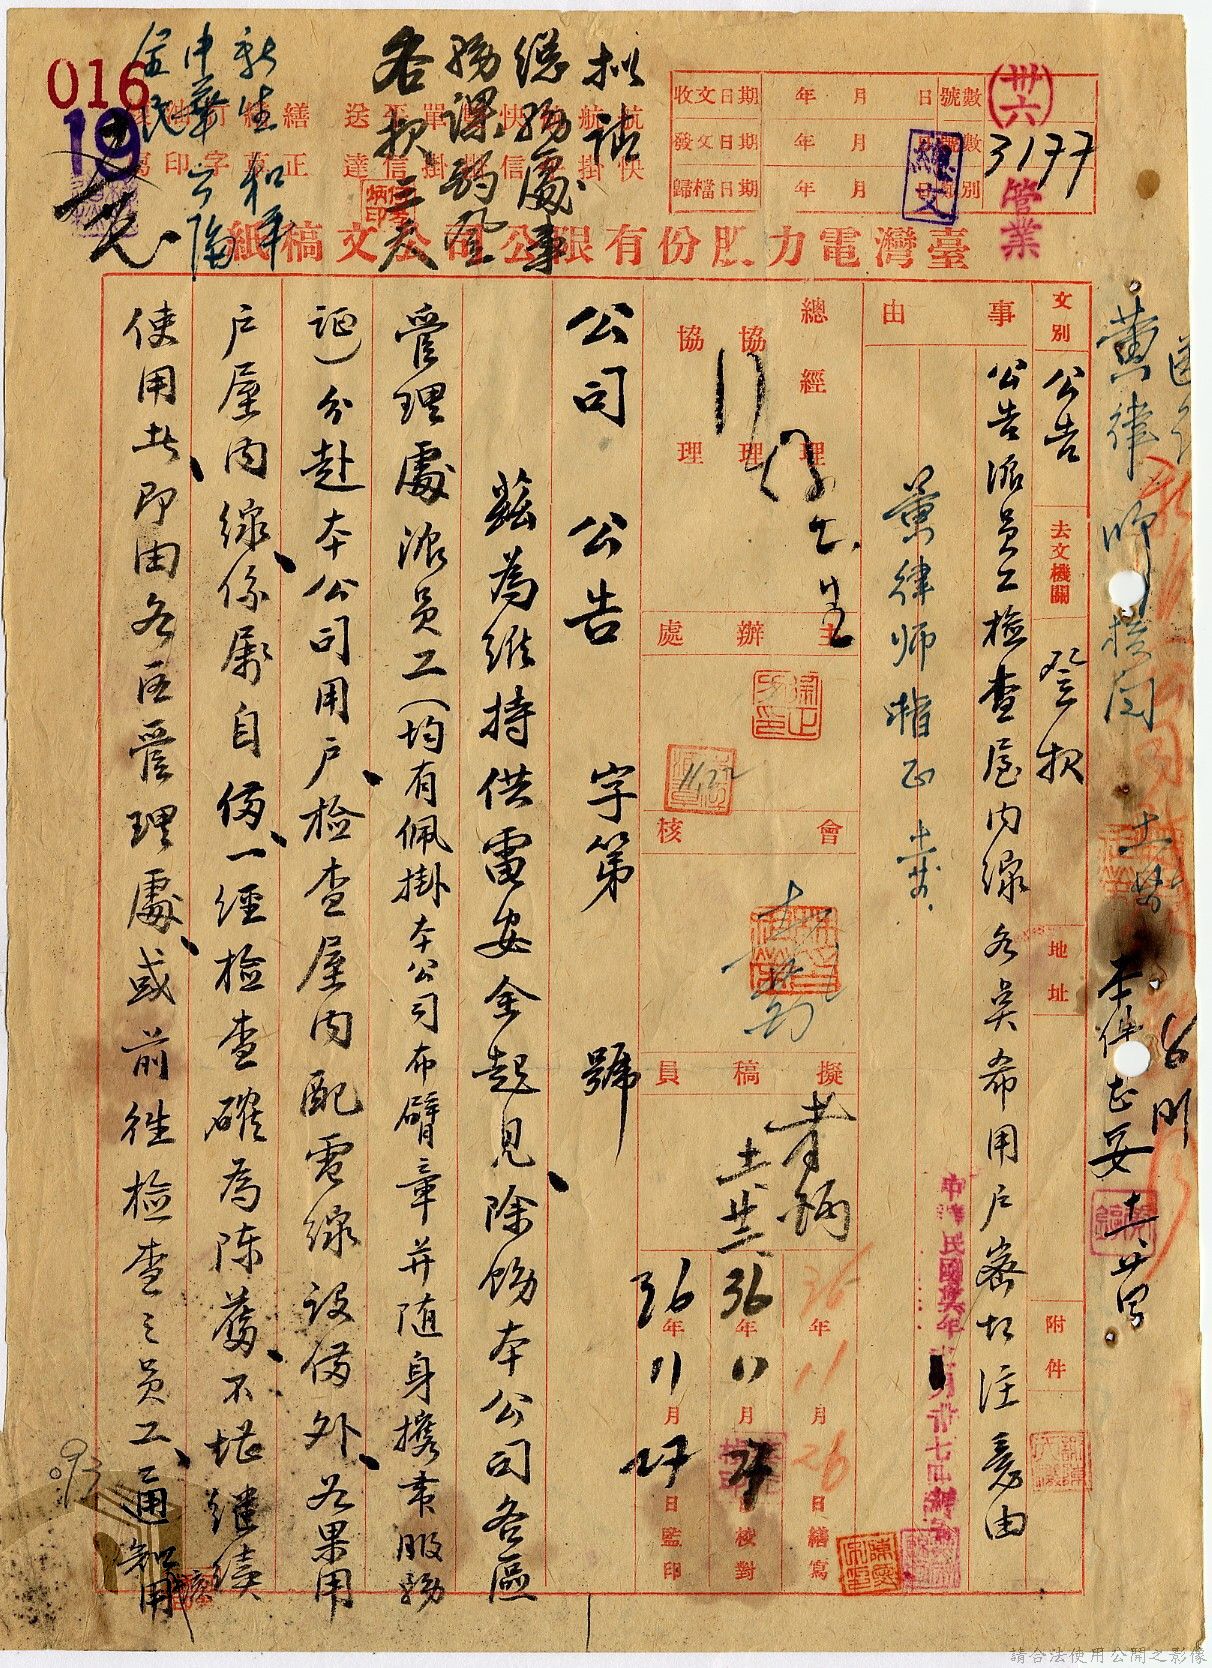 016
19
(卅六)
3177
管業
總文
收文日期 年 月 日
發文日期 年 月 日
歸檔日期 年 月 日
號數
擬請
總務處事
務課刊登
各報三天
新生 和平
中華 公論
全民
臺灣電力股份有限公司公文稿紙
文別 公告
去文機關 登報
地址
附件
事由
公告派員工檢查屋內線各點希用戶密切注意由
黃律師楷正
總經理
協理
協理
主辦處
會核
擬稿員
36年11月26日繕寫
36年11月27日校對
36年11月27日監印
中華民國卅六年十一月廿七日
公司公告 字第 號
茲為維持供電安全起見、除飭本公司各區
管理處派員工(均有佩掛本公司布臂章并隨身攜帶服務
證)分赴本公司用戶、檢查屋內配電線設備外、如果用
戶屋內線、係屬自備、一經檢查確為陳舊、不堪繼續
使用者、即由各區管理處、或前往檢查之員工、通知用
黃律師核閱
093
請合法使用公開之影像